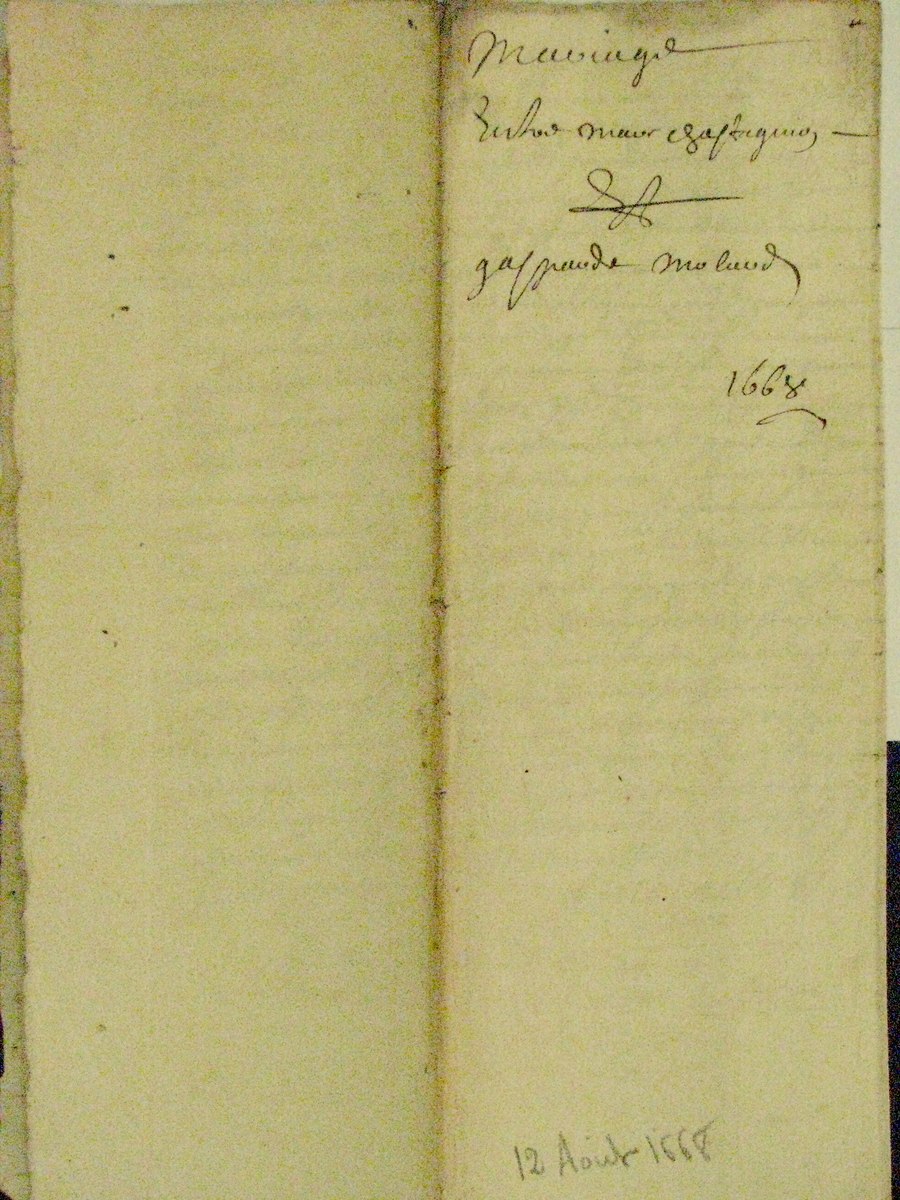 Mariage
Entre marc chastagnio
Et
gasparde molard
1668
12 Août 1668